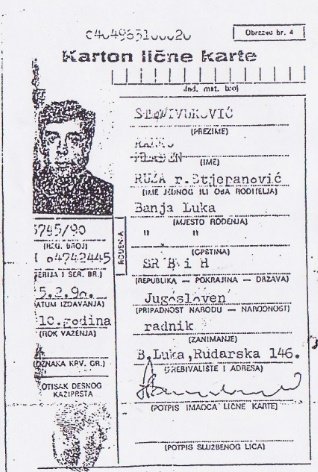 Obrazec br. 4
Karton lične karte
Jed. mat. broj
(PREZIME)
(IME)
RUŽA r.Stjepanović
(IME JEDNOG ILI OBA RODITELJA)
Banja Luka
(MJESTO ROĐENJA)
" "
(OPŠTINA)
SR B i H
(REPUBLIKA — POKRAJINA — DRŽAVA)
Jugosloven
(PRIPADNOST NARODU — NARODNOST)
radnik
(ZANIMANJE)
B.Luka,Rudarska 146.
(PREBIVALIŠTE I ADRESA)
(POTPIS IMAOCA LIČNE KARTE)
(POTPIS SLUŽBENOG LICA)
5745/90
(REG. BROJ)
04742445
(SERIJA I SER. BR.)
(DATUM IZDAVANJA)
10.godina
(ROK VAŽENJA)
(OZNAKA KRV. GR.)
OTISAK DESNOG
KAŽIPRSTA